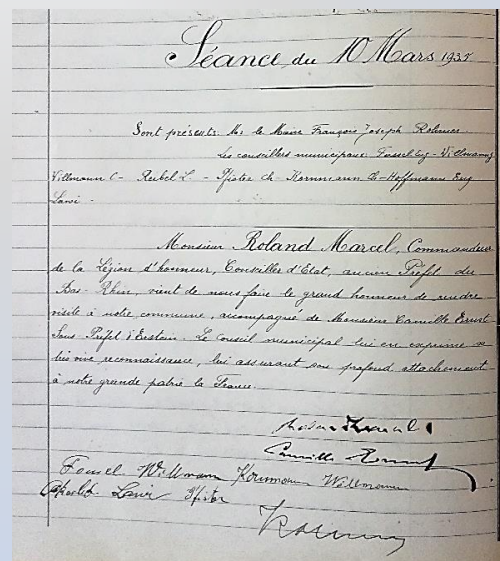 Séance du 10 Mars 1937
Sont présents: Mr le Maire François Joseph Rohmer.
Les conseillers municipaux: Fassel Eug - Willmann J
Willmann C - Reibel L - Pfister Ch - Kornmann Ch - Hoffmann Eug
Monsieur Roland Marcel, Commandeur
de la Légion d'honneur, Conseiller d'Etat, ancien Préfet du
Bas-Rhin, vient de nous faire le grand honneur de rendre
visite à notre commune, accompagné de Monsieur Camille Ernst
Sous Préfet d'Erstein. Le Conseil municipal lui en exprime sa
très vive reconnaissance, lui assurant son profond attachement
à notre grande patrie la France.
Camille Ernst
Fassel Willmann Kornmann Willmann
Pfister